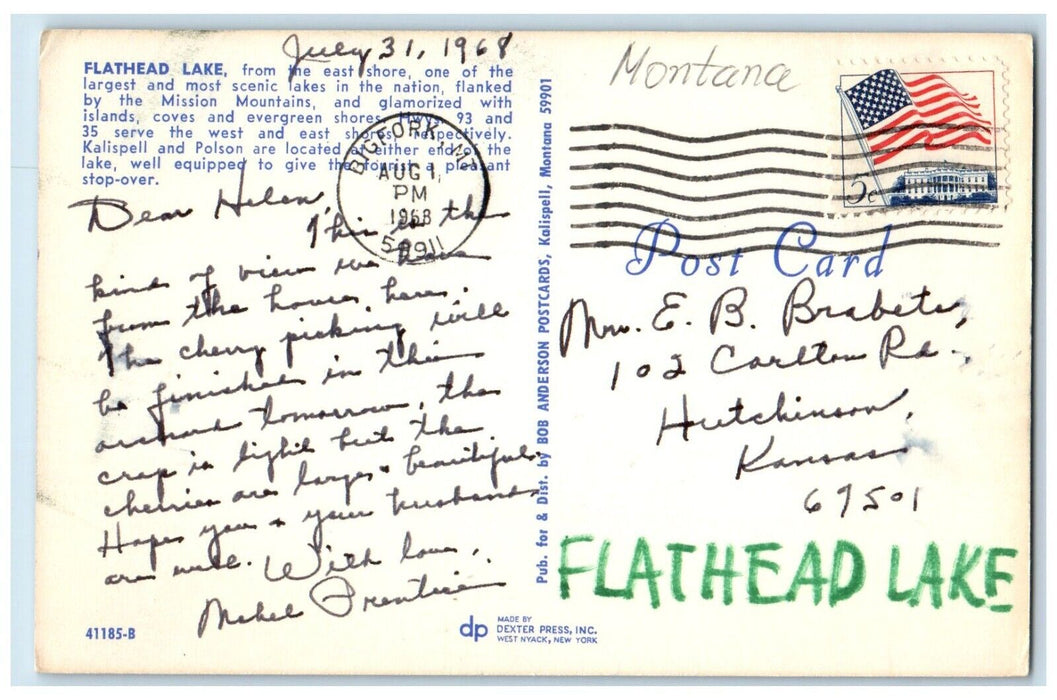 July 31, 1968
FLATHEAD LAKE, from the east shore, one of the
largest and most scenic lakes in the nation, flanked
by the Mission Mountains, and glamorized with
islands, coves and evergreen shores. Hwys. 93 and
35 serve the west and east shores respectively.
Kalispell and Polson are located at either end of the
lake, well equipped to give the tourist a pleasant
stop-over.
Dear Helen,
This is the
kind of view we have
from the house here.
The cherry picking will
be finished in this
orchard tomorrow, the
crop is light but the
cherries are large & beautiful.
Hope you & your husband
are well. With love,
Mabel Prentice
41185-B
dp MADE BY
DEXTER PRESS, INC.
WEST NYACK, NEW YORK
Pub. for & Dist. by BOB ANDERSON POSTCARDS, Kalispell, Montana 59901
BIGFORK, M
AUG 1
PM
1968
59911
Montana
5c
Post Card
Mrs. E. B. Brabets,
102 Carlton Rd.,
Hutchinson,
Kansas
67501
FLATHEAD LAKE